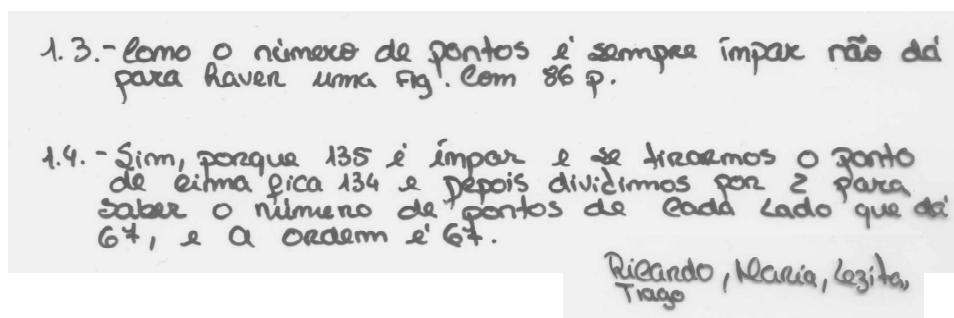 1.3.- Como o número de pontos é sempre ímpar não dá
para haver uma Fig. Com 86 p.
1.4.- Sim, porque 135 é ímpar e se tirarmos o ponto
de cima fica 134 e depois dividimos por 2 para
saber o número de pontos de cada lado que dá
67, e a ordem é 67.
Ricardo, Maria, Lezita,
Tiago